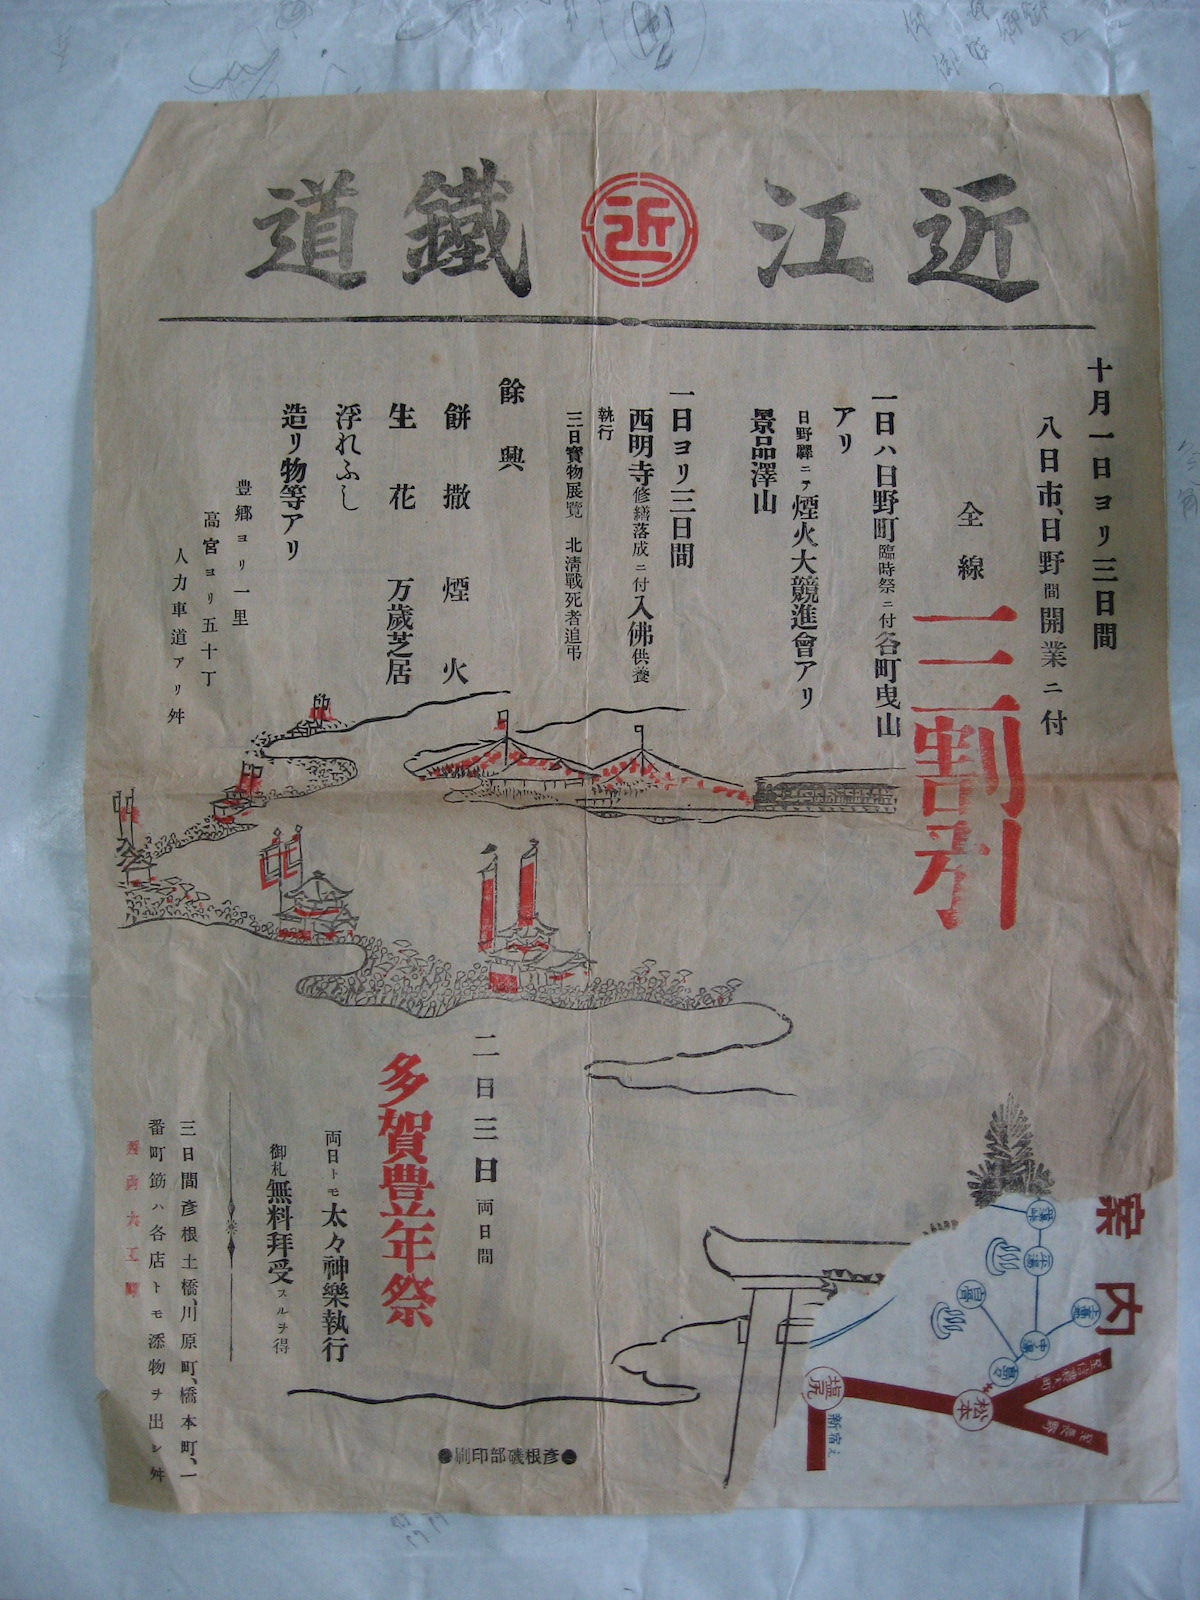 近江㊣鐵道
十月一日ヨリ三日間
八日市、日野間開業ニ付
全線三割引
一日ハ日野町臨時祭ニ付各町曳山
アリ
日野驛ニテ煙火大競進會アリ
景品澤山
一日ヨリ三日間
西明寺修繕落成ニ付入佛供養
執行
三日寳物展覽 北淸戰死者追弔
餘興
餅撒 煙火
生花 万歲芝居
浮れふし
造リ物等アリ
豊鄕ヨリ一里
高宮ヨリ五十丁
人力車道アリ舛
二日三日両日間
多賀豊年祭
両日トモ太々神樂執行
御札無料拜受スルヲ得
三日間彥根土橋、川原町、橋本町、一
番町筋ハ各店トモ添物ヲ出シ舛
●彥根磯部印刷●
案内
平湯
白骨
上高地
中の湯
島々
松本
塩尻
新宿え
至信濃大町
至長野